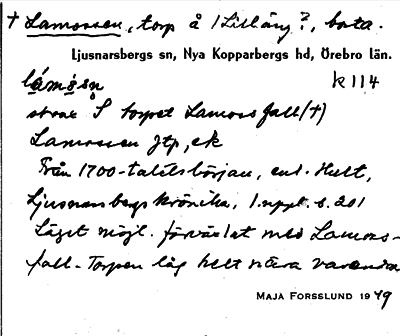 † Lamossen, torp å /Lilläng?, borta.
Ljusnarsbergs sn, Nya Kopparbergs hd, Örebro län.
lámo̊sn k 114
strax S torpet Lamossfall (†)
Lamossen Jtp, ek
Från 1700-talets början, enl. Hult,
Ljusnarsbergs krönika, 1. uppl. s. 201
Läget möjl. förväxlat med Lamoss-
fall. Torpen låg helt nära varandra
MAJA FORSSLUND 1949